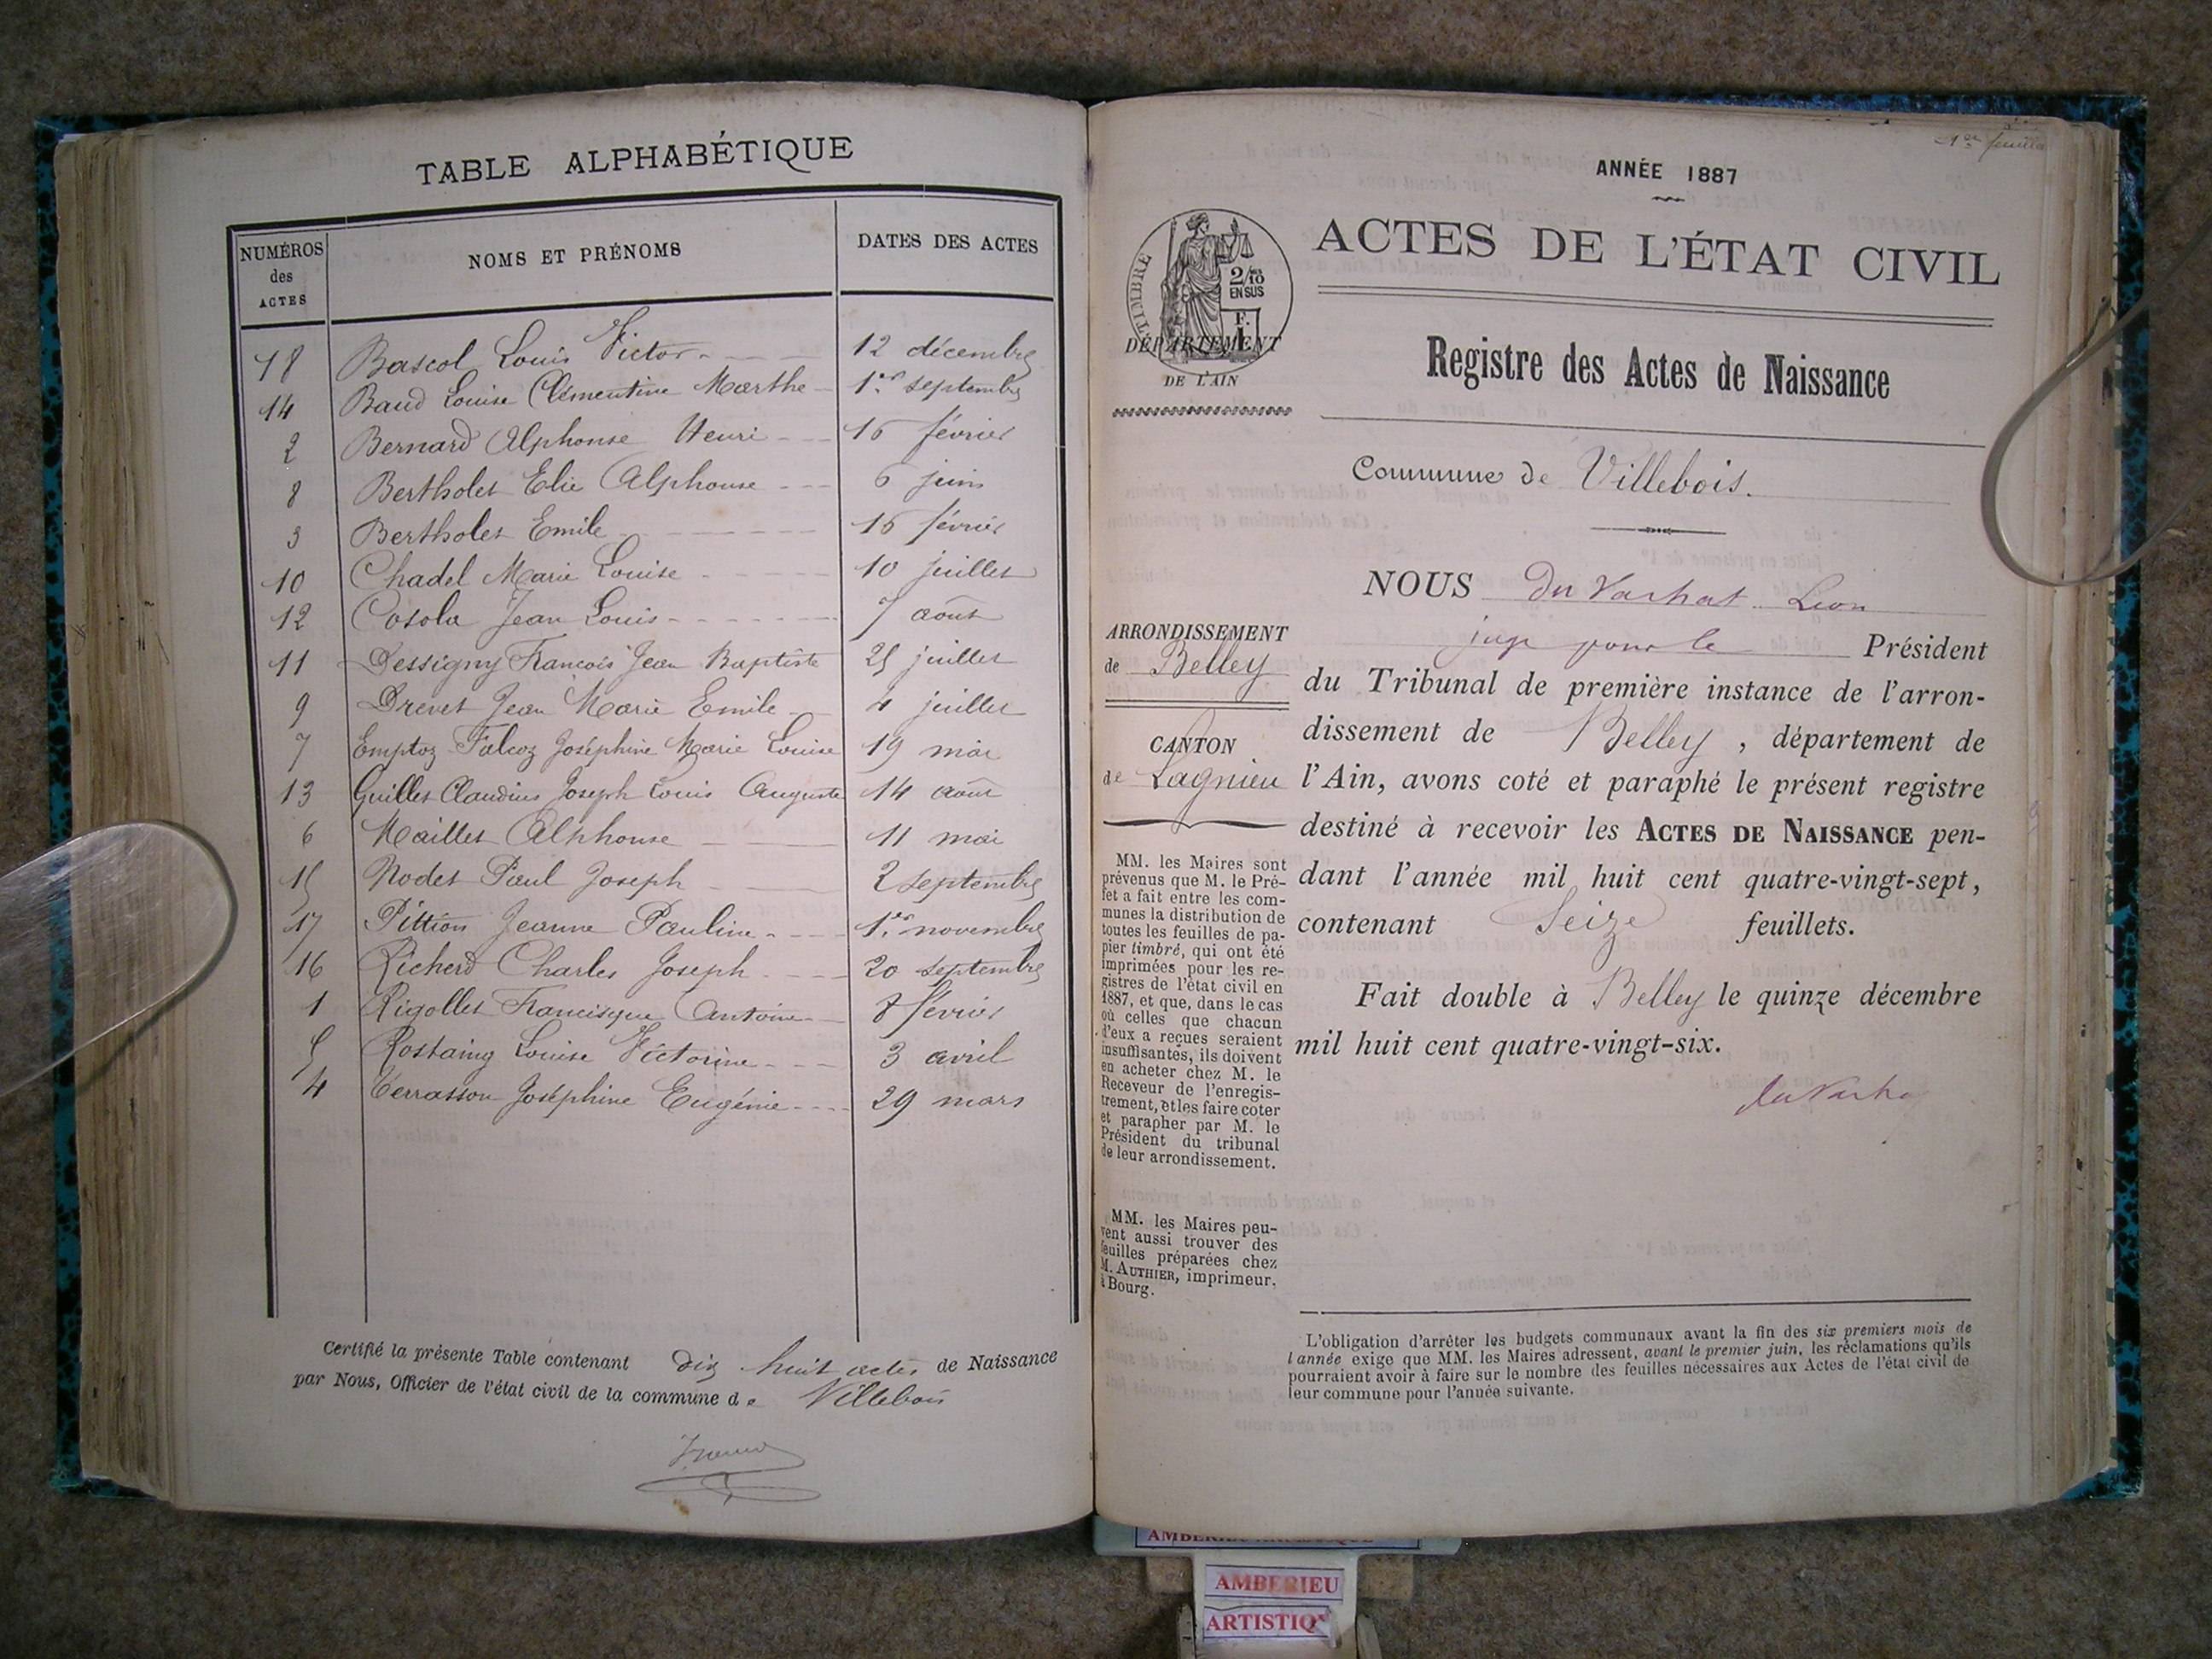 TABLE ALPHABÉTIQUE
NUMÉROS des ACTES NOMS ET PRÉNOMS DATES DES ACTES
18 Bascol Louis Victor 12 décembre
14 Baud Louise Clémentine Marthe 1er septembre
2 Bernard Alphonse Henri 16 février
8 Bertholet Elie Alphonse 6 juin
3 Bertholet Emile 16 février
10 Chadel Marie Louise 10 juillet
12 Cosola Jean Louis 7 août
11 Dessigny François Jean Baptiste 25 juillet
9 Drevet Jean Marie Emile 4 juillet
7 Emptoz Falcoz Joséphine Marie Louise 19 mai
13 Guillet Claudius Joseph Louis Auguste 14 août
6 Maillet Alphonse 11 mai
15 Nodet Paul Joseph 2 septembre
17 Pittion Jeanne Pauline 1er novembre
16 Richerd Charles Joseph 20 septembre
1 Rigollet Francisque Antoine 8 février
5 Rostaing Louise Victorine 3 avril
4 Terrasson Joséphine Eugénie 29 mars
Certifié la présente Table contenant dix huit actes de Naissance
par Nous, Officier de l'état civil de la commune de Villebois
1er feuillet
ANNÉE 1887
TIMBRE
2/10
EN SUS
F.
1
DÉPARTEMENT
DE L'AIN
ACTES DE L'ÉTAT CIVIL
Registre des Actes de Naissance
Commune de Villebois.
ARRONDISSEMENT
de Belley
CANTON
de Lagnieu
MM. les Maires sont
prévenus que M. le Pré-
fet a fait entre les com-
munes la distribution de
toutes les feuilles de pa-
pier timbré, qui ont été
imprimées pour les re-
gistres de l'état civil en
1887, et que, dans le cas
où celles que chacun
d'eux a reçues seraient
insuffisantes, ils doivent
en acheter chez M. le
Receveur de l'enregis-
trement, et les faire coter
et parapher par M. le
Président du tribunal
de leur arrondissement.
MM. les Maires peu-
vent aussi trouver des
feuilles préparées chez
M. AUTHIER, imprimeur,
à Bourg.
NOUS Du Vachat Léon
juge pour le Président
du Tribunal de première instance de l'arron-
dissement de Belley, département de
l'Ain, avons coté et paraphé le présent registre
destiné à recevoir les ACTES DE NAISSANCE pen-
dant l'année mil huit cent quatre-vingt-sept,
contenant Seize feuillets.
Fait double à Belley le quinze décembre
mil huit cent quatre-vingt-six.
L'obligation d'arrêter les budgets communaux avant la fin des six premiers mois de
l'année exige que MM. les Maires adressent, avant le premier juin, les réclamations qu'ils
pourraient avoir à faire sur le nombre des feuilles nécessaires aux Actes de l'état civil de
leur commune pour l'année suivante.
AMBERIEU
ARTISTIQ